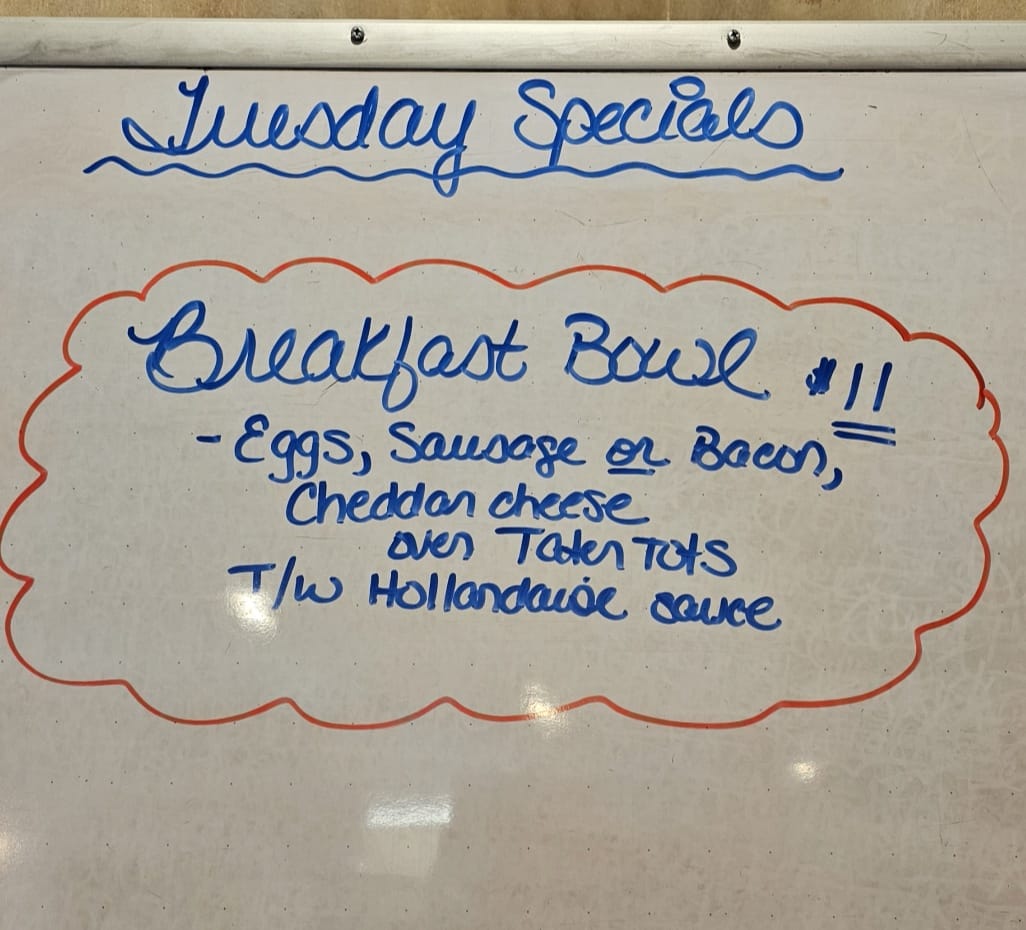 Tuesday Specials
Breakfast Bowl $11
- Eggs, Sausage or Bacon,
Cheddar cheese
over Tater Tots
T/w Hollandaise sauce